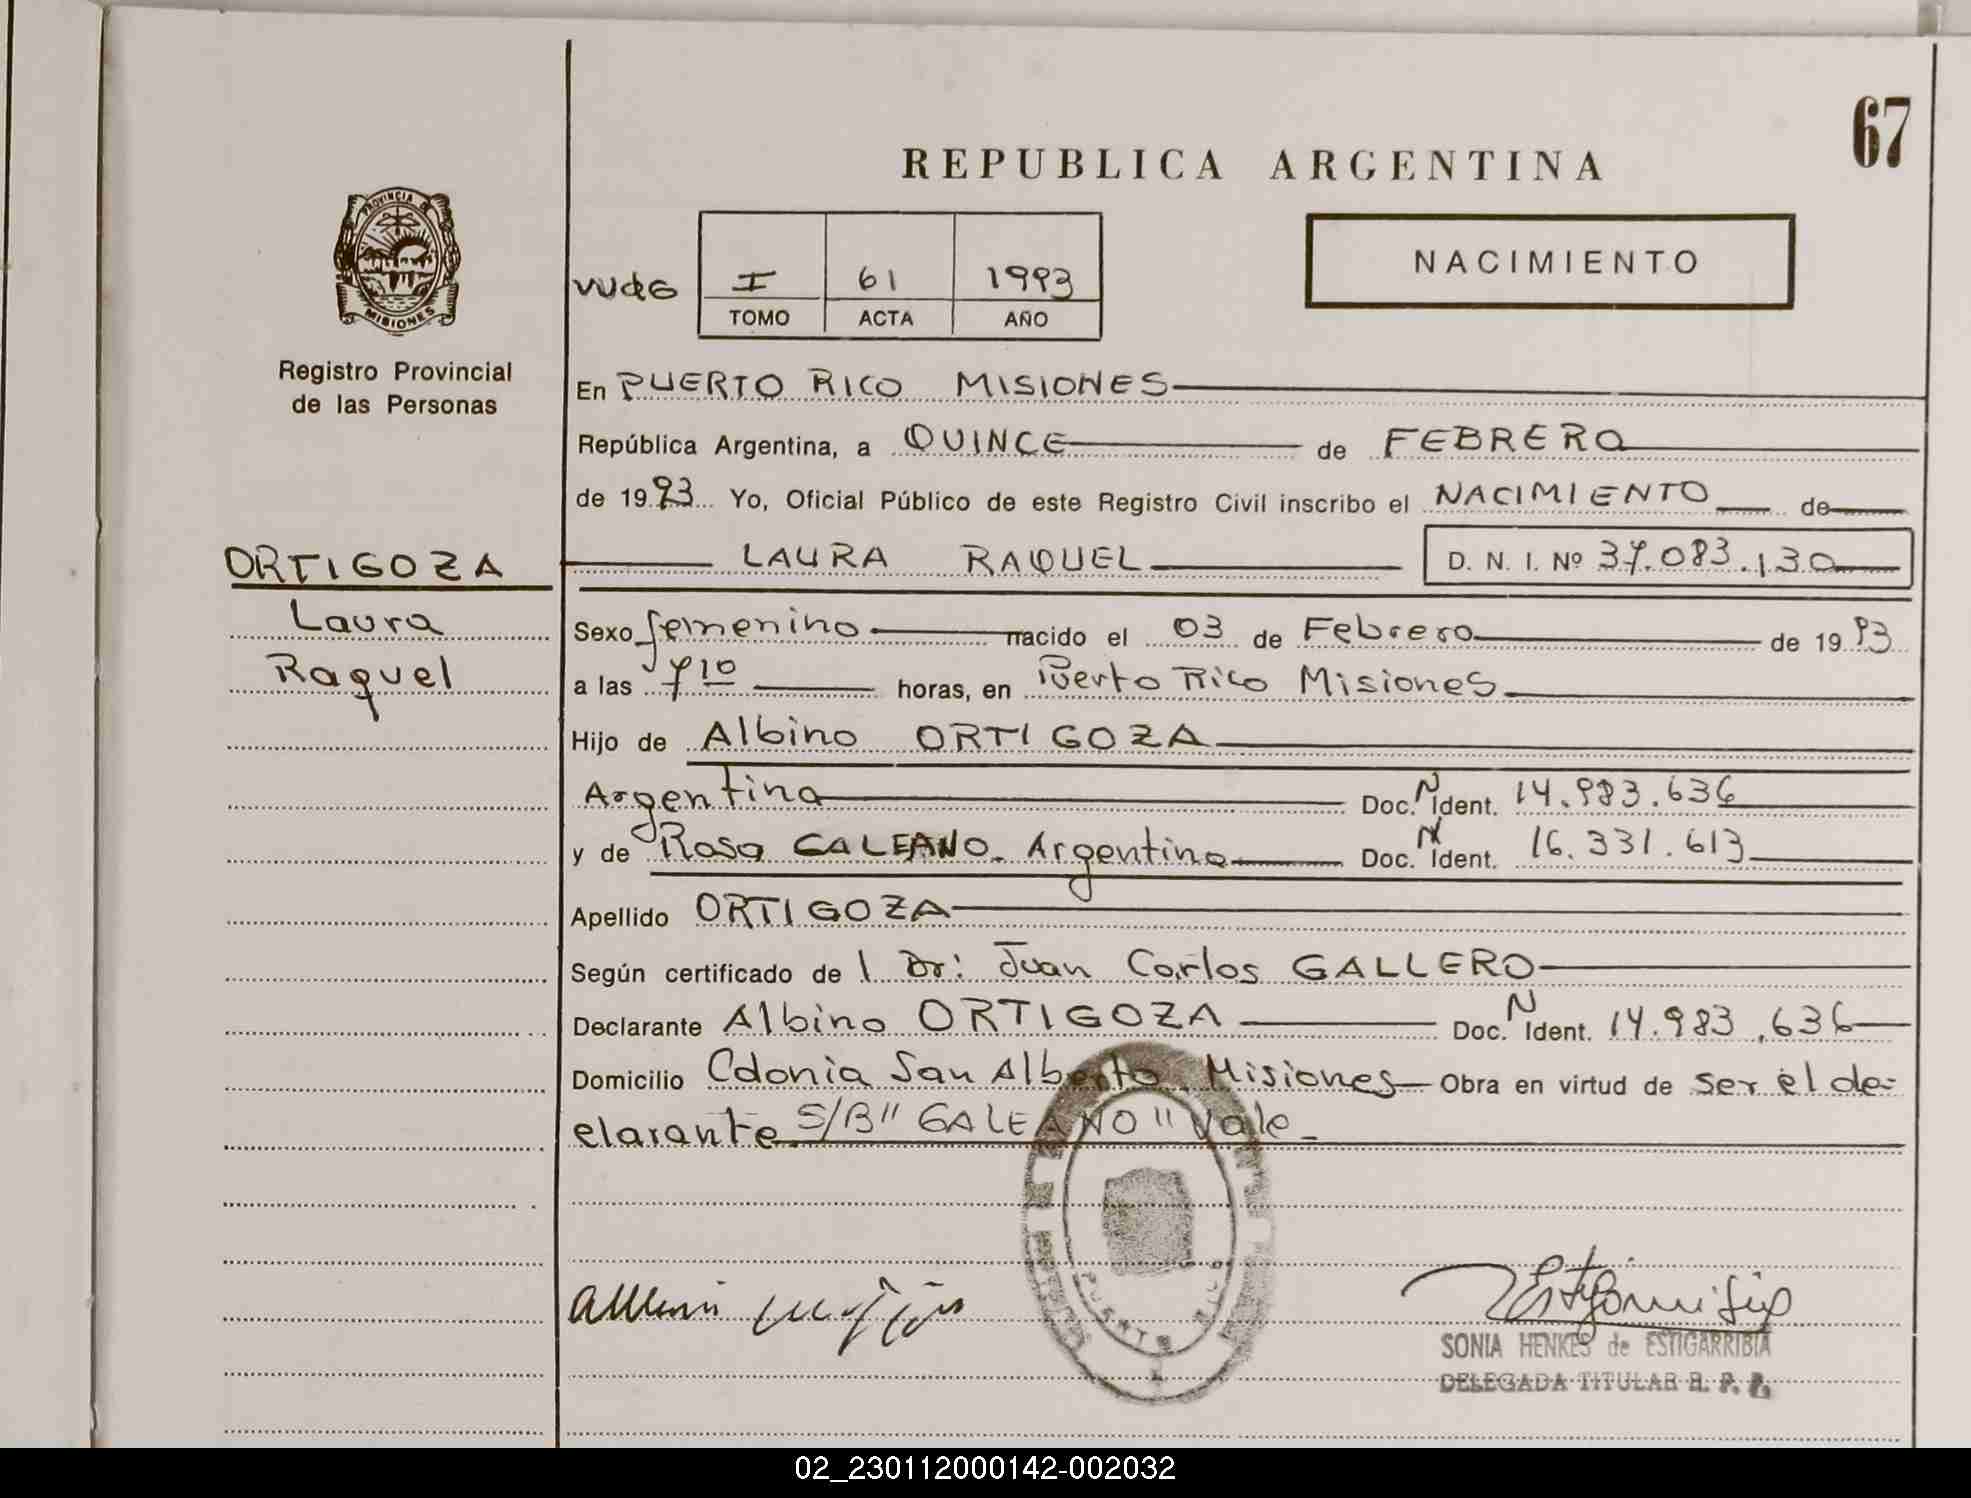 67
REPUBLICA ARGENTINA
NACIMIENTO
PROVINCIA DE
MISIONES
Registro Provincial
de las Personas
I 61 1993
TOMO ACTA AÑO
En PUERTO RICO MISIONES
República Argentina, a QUINCE de FEBRERO
de 1993 Yo, Oficial Público de este Registro Civil inscribo el NACIMIENTO de
ORTIGOZA
Laura
Raquel
LAURA RAQUEL D. N. I. Nº 37.083.130
Sexo femenino nacido el 03 de Febrero de 1993
a las 7 10 horas, en Puerto Rico Misiones
Hijo de Albino ORTIGOZA
Argentina Doc. N Ident. 14.983.636
y de Rosa GALEANO. Argentina Doc. N Ident. 16.331.613
Apellido ORTIGOZA
Según certificado de l Dr: Juan Carlos GALLERO
Declarante Albino ORTIGOZA Doc. N Ident. 14.983.636
Domicilio Colonia San Alberto Misiones Obra en virtud de ser el de=
clarante S/B" GALEANO" Vale
PUERTO RICO
SONIA HENKES de ESTIGARRIBIA
DELEGADA TITULAR R. P. P.
02_230112000142-002032